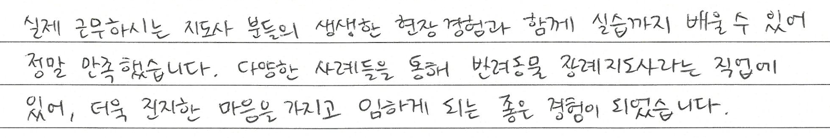 실제 근무하시는 지도사 분들의 생생한 현장경험과 함께 실습까지 배울 수 있어
정말 만족했습니다. 다양한 사례들을 통해 반려동물 장례지도사라는 직업에
있어, 더욱 진지한 마음을 가지고 임하게 되는 좋은 경험이 되었습니다.